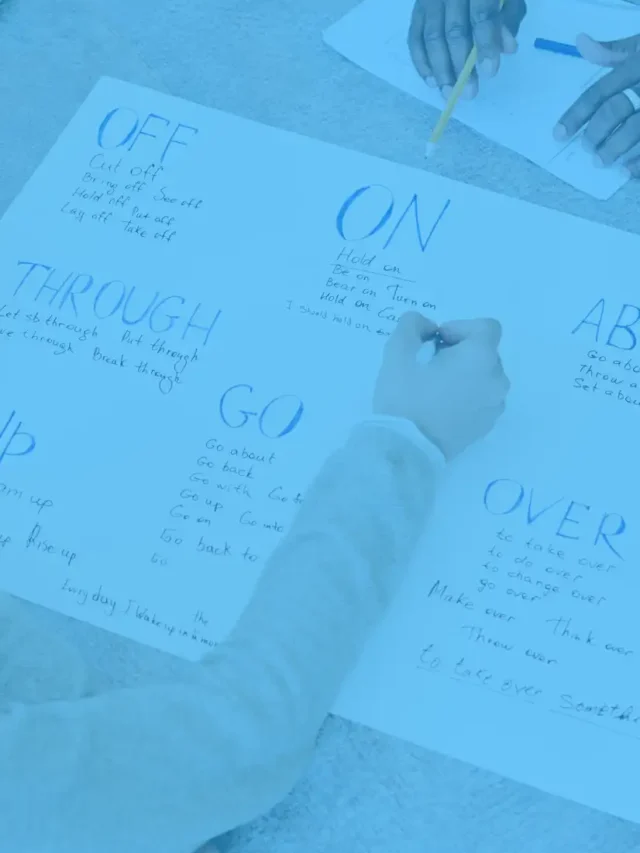 OFF
Cut off
Bring off See off
Hold off Put off
Lay off Take off
ON
Hold on
Be on
Bear on Turn on
Hold on Ca
I should hold on
THROUGH
Let sb through Put through
through Break through
ABO
Go abo
Throw a
Set abou
GO
Go about
Go back
Go with Go
Go up Go into
Go on
Go back to
Go
UP
up
up Rise up
Every day I wake up in the mor
OVER
to take over
to do over
to change over
go over
Make over Think over
Throw over
to take over Somethi